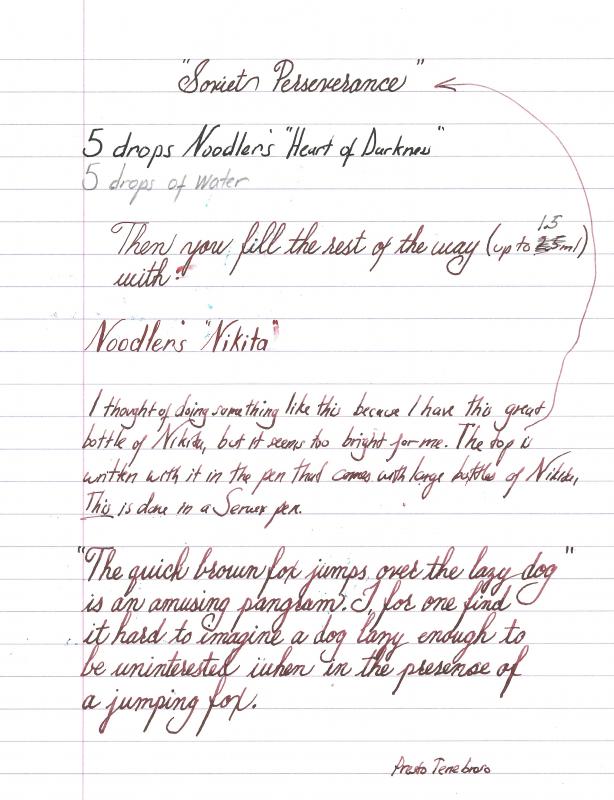 "Soviet Perseverance"
5 drops Noodler's "Heart of Darkness"
5 drops of water
Then you fill the rest of the way (up to 15 ml)
with:
Noodler's "Nikita"
I thought of doing something like this because I have this great
bottle of Nikita, but it seems too bright for me. The top is
written with it in the pen that comes with large bottles of Nikita,
This is done in a pen.
"The quick brown fox jumps over the lazy dog"
is an amusing pangram. I, for one find
it hard to imagine a dog lazy enough to
be uninterested when in the presence of
a jumping fox.
Presto Tenebroso